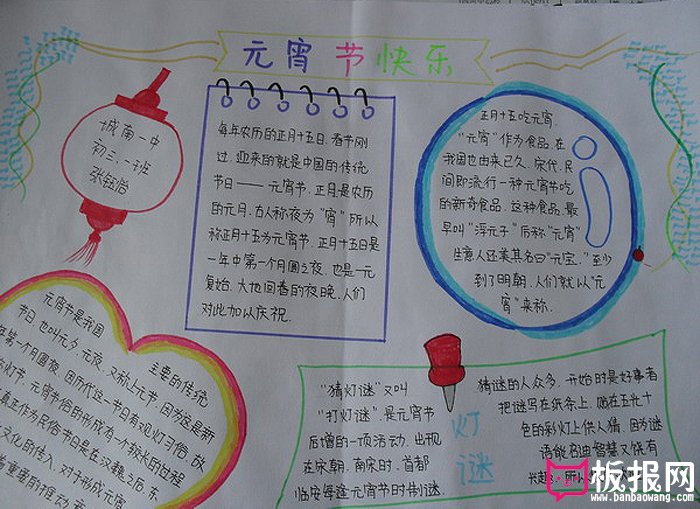 元宵节快乐
城南一中
初三、二班
张钰怡
每年农历的正月十五日，春节刚
过，迎来的就是中国的传统
节日——元宵节。正月是农历
的元月，古人称夜为“宵”所以
称正月十五为元宵节。正月十五日是
一年中第一个月圆之夜，也是一元
复始，大地回春的夜晚，人们
对此加以庆祝．
正月十五吃元宵，
“元宵”作为食品，在
我国也由来已久．宋代，民
间即流行一种元宵节吃
的新奇食品．这种食品，最
早叫“浮元子”后称“元宵”
生意人还美其名曰“元宝。”至少
到了明朝，人们就以“元
宵”来称．
元宵节是我国
主要的传统
节日，也叫元夕，元夜，又称上元节，因为这是新
年第一个月圆夜．因历代这一节日有观灯习俗，故
灯节．元宵节俗的形成有一个较长的过程
真正作为民俗节日是在汉魏之后．东
文化的传入，对于形成元宵
重要的推动
“猜灯谜”又叫
“打灯谜”是元宵节
后增的一项活动，出现
在宋朝．南宋时，首都
临安每逢元宵节时制谜．
灯谜
猜谜的人众多．开始时是好事者
把谜写在纸条上，贴在五光十
色的彩灯上供人猜．因为谜
语能启迪智慧又饶有
兴趣，所以
板报网
www.banbaowang.com